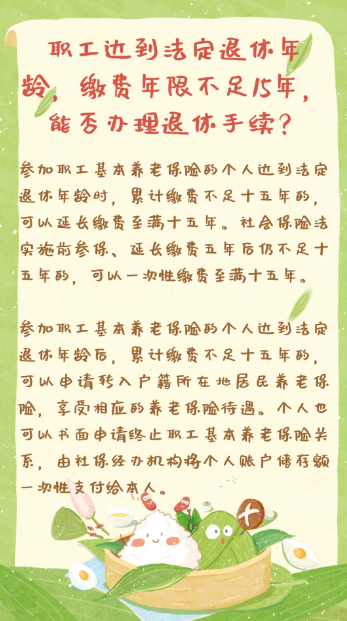 职工达到法定退休年
龄，缴费年限不足15年，
能否办理退休手续？
参加职工基本养老保险的个人达到法定
退休年龄时，累计缴费不足十五年的，
可以延长缴费至满十五年。社会保险法
实施前参保、延长缴费五年后仍不足十
五年的，可以一次性缴费至满十五年。
参加职工基本养老保险的个人达到法定
退休年龄后，累计缴费不足十五年的，
可以申请转入户籍所在地居民养老保
险，享受相应的养老保险待遇。个人也
可以书面申请终止职工基本养老保险关
系，由社保经办机构将个人账户储存额
一次性支付给本人。